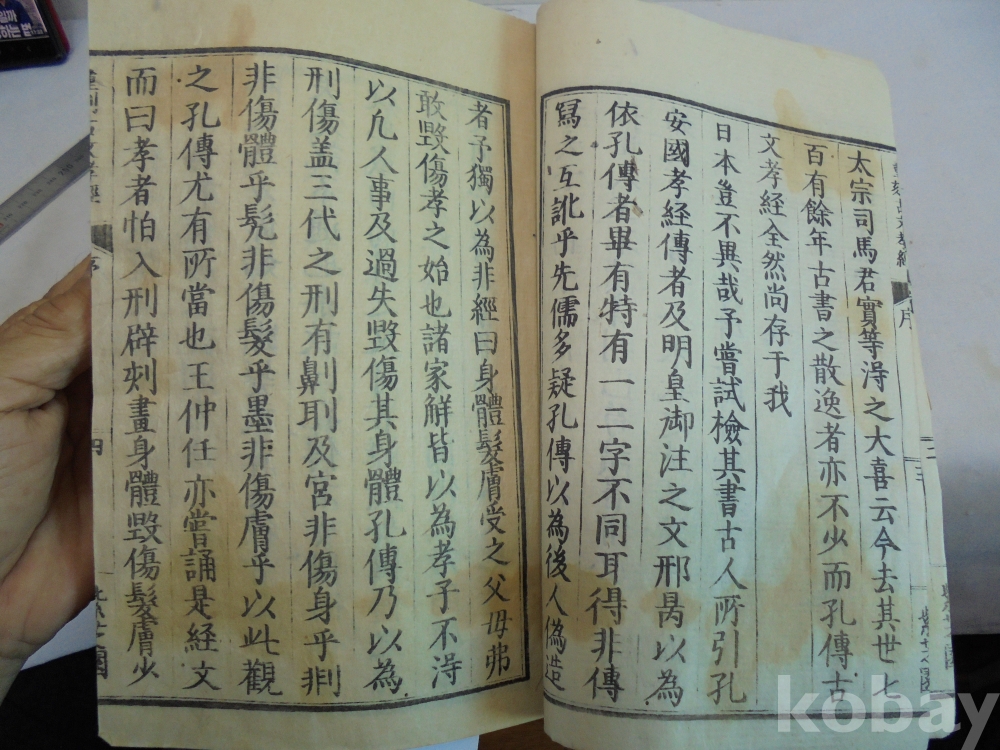 太宗司馬君實等淂之大喜云今去其世七
百有餘年古書之散逸者亦不少而孔傳古
文孝經全然尚存于我
日本豈不異哉予嘗試檢其書古人所引孔
安國孝經傳者及明皇御注之文邢昺以為
依孔傳者畢有特有一二字不同耳得非傳
寫之互訛乎先儒多疑孔傳以為後人偽造
者予獨以為非經曰身體髮膚受之父母弗
敢毀傷孝之始也諸家解皆以為孝子不淂
以凢人事及過失毀傷其身體孔傳乃以為
刑傷盖三代之刑有劓刵及宮非傷身乎剕
非傷體乎髡非傷髮乎墨非傷膚乎以此觀
之孔傳尤有所當也王仲任亦嘗誦是經文
而曰孝者怕入刑辟刻畫身體毀傷髮膚少
序
四
三
kobay